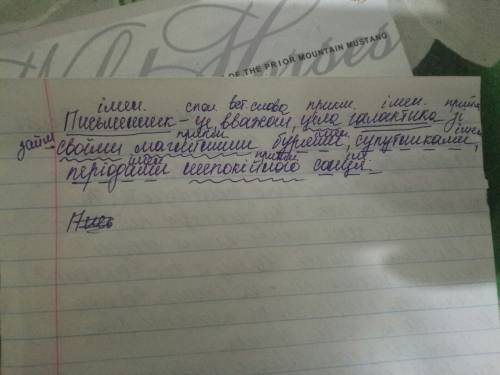 Wild Horses
OF THE PRIOR MOUNTAIN MUSTANG
імен. спол. вст. слово прикм. імен. прийм
Письменник - це, вважай, ціла галактика зі
займ прикм імен імен
своїми магнітними бурями, супутниками,
імен прикм імен
періодами неспокійного сонця.